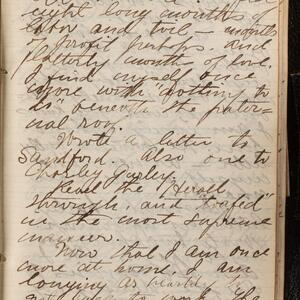 eight long months of
labor and toil — months
of profit perhaps, and
of love,
I find myself once
more with "nothing to
do" beneath the pater-
nal roof.
Wrote a letter to
Sandford. Also one to
Charley
Read the "Herald"
through, and "loafed"
in the most supreme
manner.
Now that I am once
more at home, I am
longing as heartily